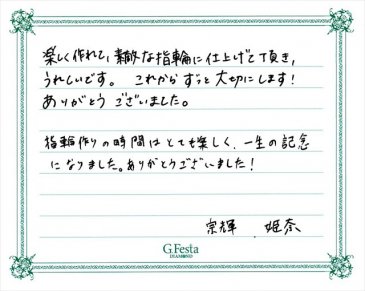 楽しく作れて、素敵な指輪に仕上げて頂き、
うれしいです。 これから ずっと 大切にします！
ありがとう ございました。
指輪作りの時間はとても楽しく、一生の記念
になりました。ありがとうございました！
宗輝 姫奈
G.Festa
DIAMOND